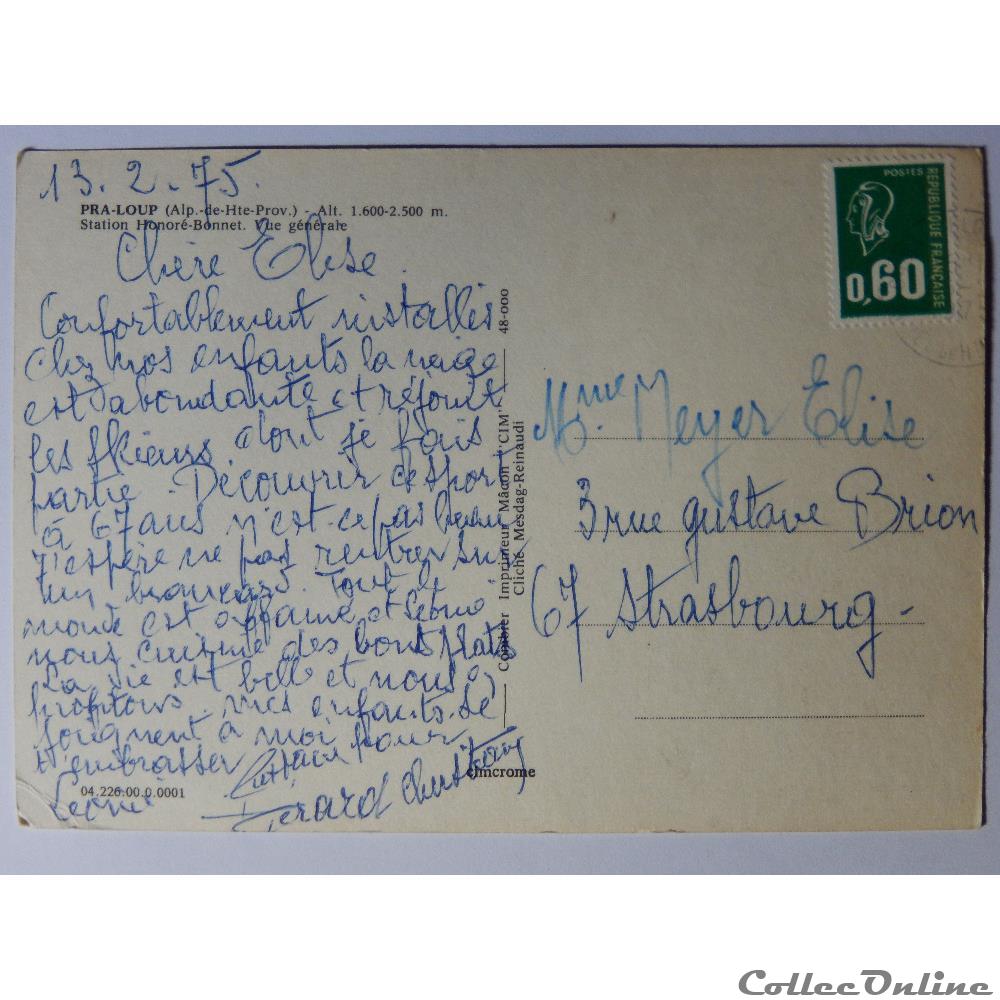 13.2.75.
PRA-LOUP (Alp.-de-Hte-Prov.) - Alt. 1.600-2.500 m.
Station Honoré-Bonnet. Vue générale
Chère Elise.
Confortablement installés
chez nos enfants la neige
est abondante et réjouit
les skieurs dont je fais
partie. Découvrir ce sport
à 67 ans n'est-ce pas beau
J'espère ne pas rentrer sur
un brancard. Tout le
monde est affamé et Léonie
nous cuisine des bons plats
La vie est belle et nous
profitons. mes enfants se
joignent à moi pour
t'embrasser
Léonie
Gérard Christiane
04.226.00.0.0001
cimcrome
Combier Imprimeur Mâcon "CIM" 48-000
Cliché Mesdag-Reinaudi
POSTES
REPUBLIQUE FRANCAISE
0,60
Mme Meyer Elise
3 rue Gustave Brion
67 Strasbourg-
CollecOnline